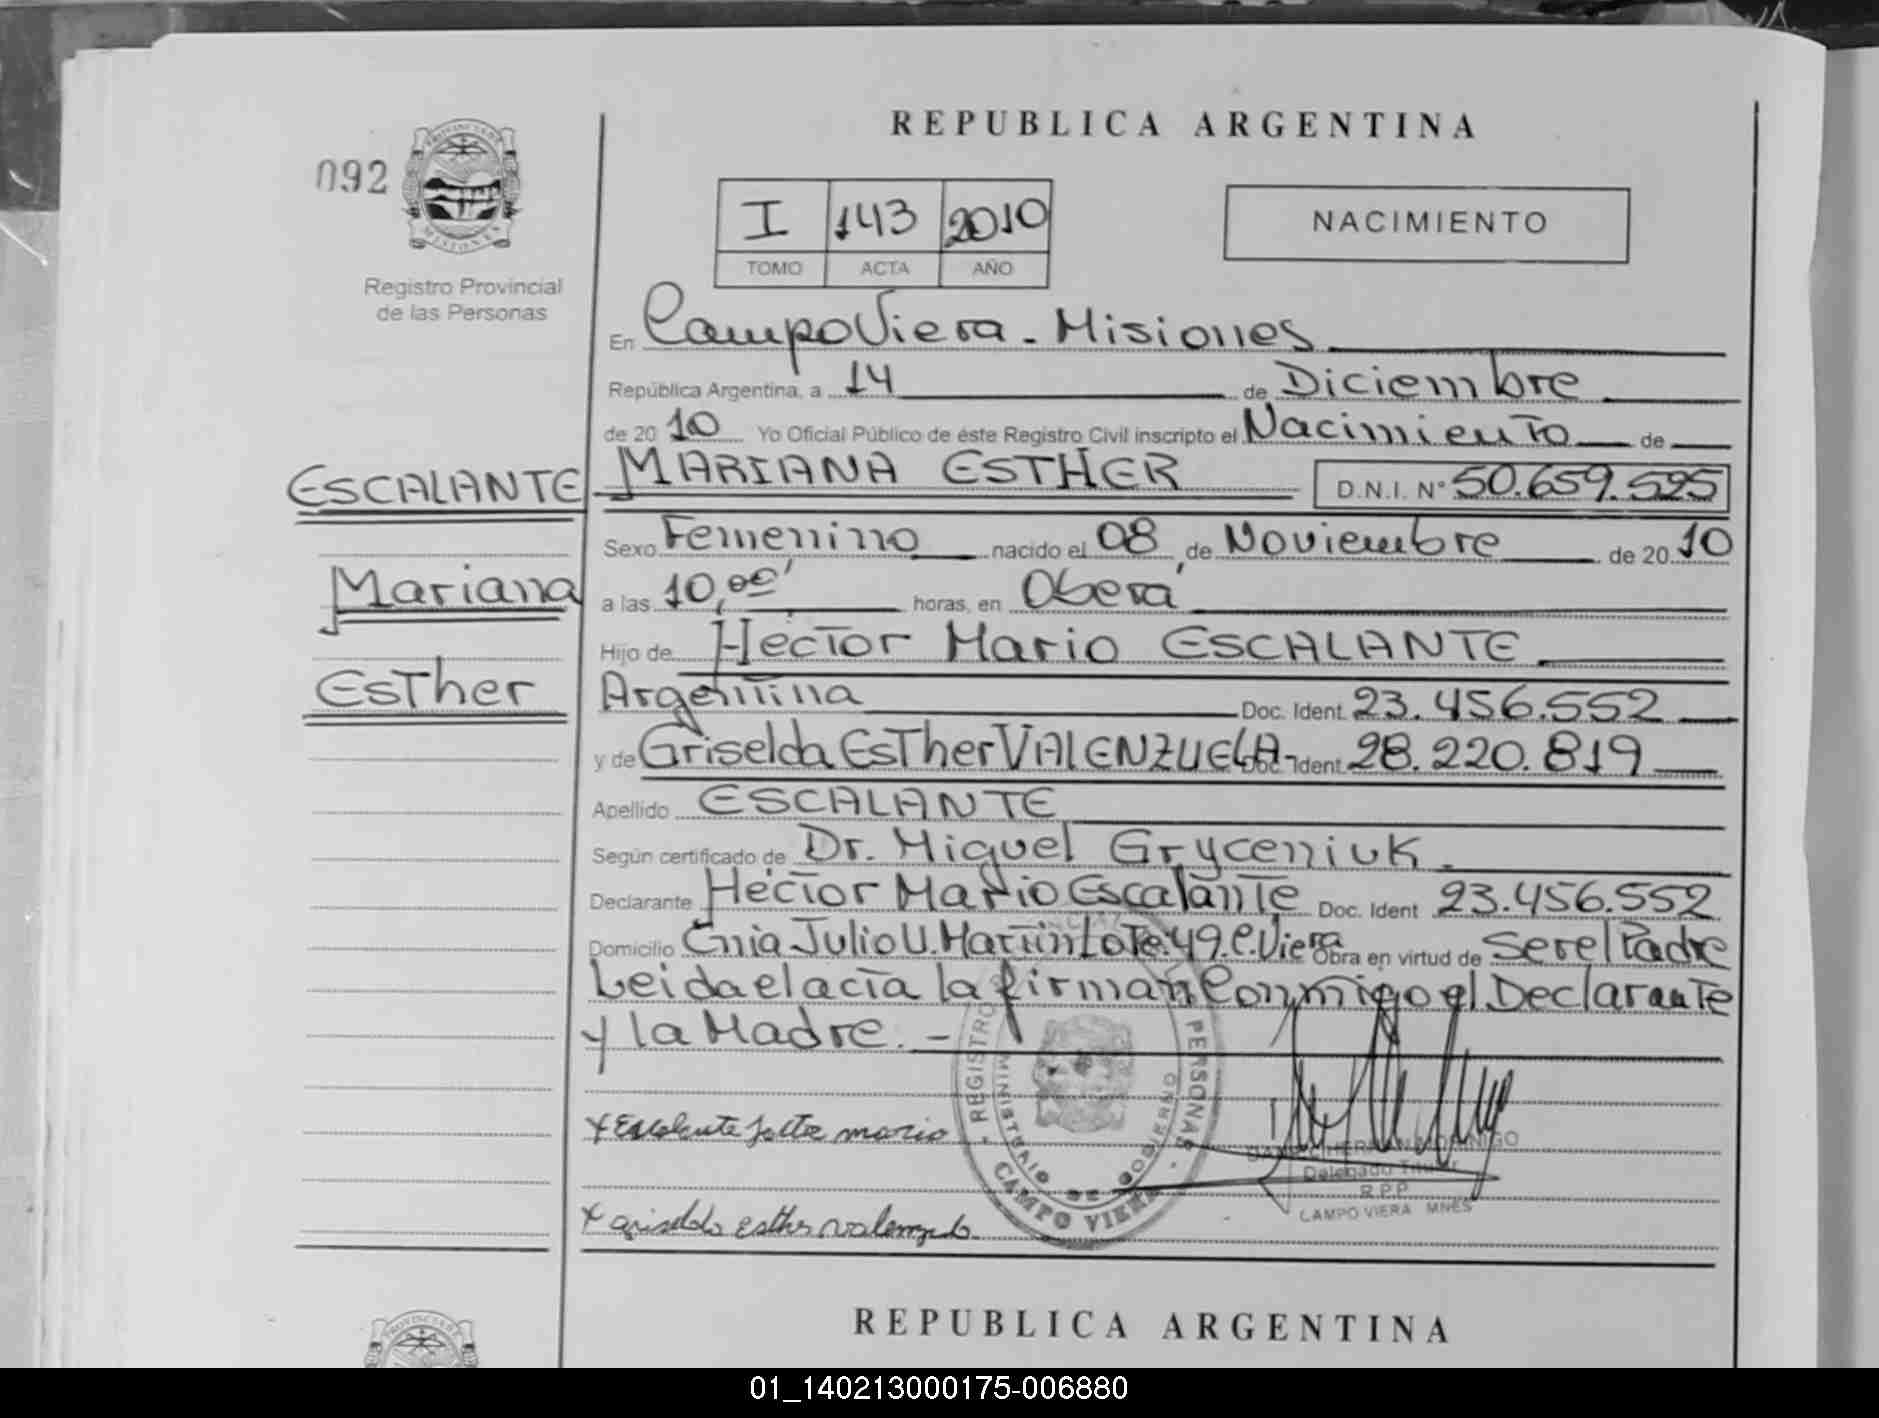 REPUBLICA ARGENTINA
092
PROVINCIA DE
MISIONES
Registro Provincial
de las Personas
I 143 2010
TOMO ACTA AÑO
NACIMIENTO
En Campo Viera - Misiones
República Argentina, a 14 de Diciembre
de 2010 Yo Oficial Público de éste Registro Civil inscripto el Nacimiento de
ESCALANTE MARIANA ESTHER D.N.I. N° 50.659.525
Sexo Femenino nacido el 08 de Noviembre de 2010
Mariana
a las 10,00' horas, en Oberá
Hijo de Hector Mario ESCALANTE
Esther
Argentina Doc. Ident. 23.456.552
y de Griselda Esther VALENZUELA - Doc. Ident. 28.220.819
Apellido ESCALANTE
Según certificado de Dr. Miguel Gryceniuk.
Declarante Héctor Mario Escalante Doc. Ident 23.456.552
Domicilio Cnia Julio U. Martin Lote: 49. C. Viera Obra en virtud de Ser el Padre
Leida el acta la firman Conmigo el Declarante
y la Madre. -
REGISTRO PERSONAS
MINISTERIO DE GOBIERNO
CAMPO VIERA
x Escalante Hector mario
HERNAN MORINIGO
Delegado Titular
R.P.P.
CAMPO VIERA MNES
x Griselda Esther Valenzuela
REPUBLICA ARGENTINA
PROVINCIA DE
01_140213000175-006880